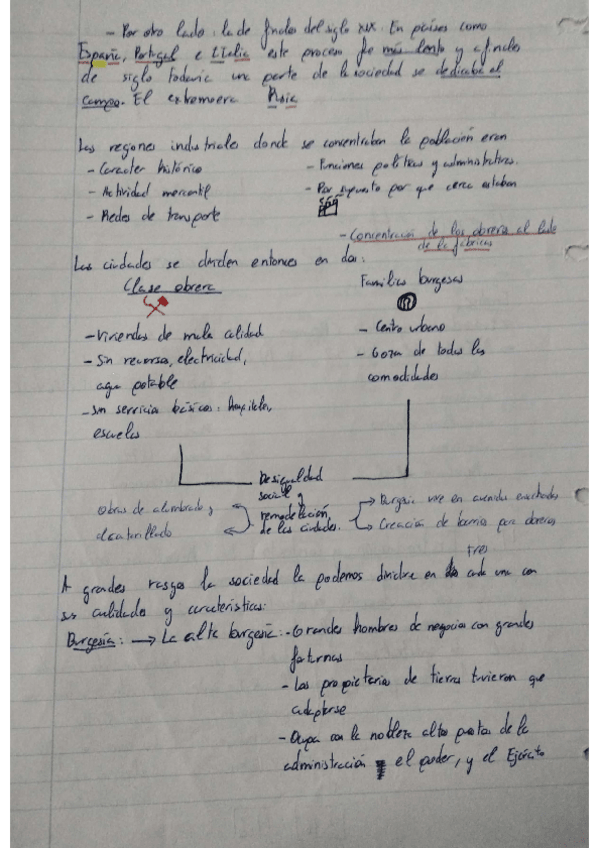 - Por otro lado: la de finales del siglo XIX. En países como
España, Portugal e Italia este proceso fue más lento y a finales
de siglo todavía una parte de la sociedad se dedicaba al
campo. El extremo era Rusia
Las regiones industriales donde se concentraban la población eran
- Caracter histórico
- Funciones políticas y administrativas.
- Actividad mercantil
- Por supuesto por que cerca estaban
- Redes de transporte
- Concentración de los obreros al lado
de las fábricas
Las ciudades se dividen entonces en dos:
Clase obrera
Familias burgesas
- Viviendas de mala calidad
- Centro urbano
- Sin recursos, electricidad,
agua potable
- Goza de todas las
comodidades
- Sin servicios básicos: hospitales,
escuelas
Desigualdad
social y
remodelación
de las ciudades.
Obras de alumbrado y
alcantarillado
Burgesía vive en avenidas
Creación de barrios para obreros
A grandes rasgos la sociedad la podemos dividirla en tres cada una con
sus cualidades y características:
Burgesía: → La alta burgesía: - Grandes hombres de negocios con grandes
fortunas
- Los propietarios de tierras tuvieron que
adaptarse
- Ocupa con la nobleza altos puestos de la
administración el poder, y el Ejército